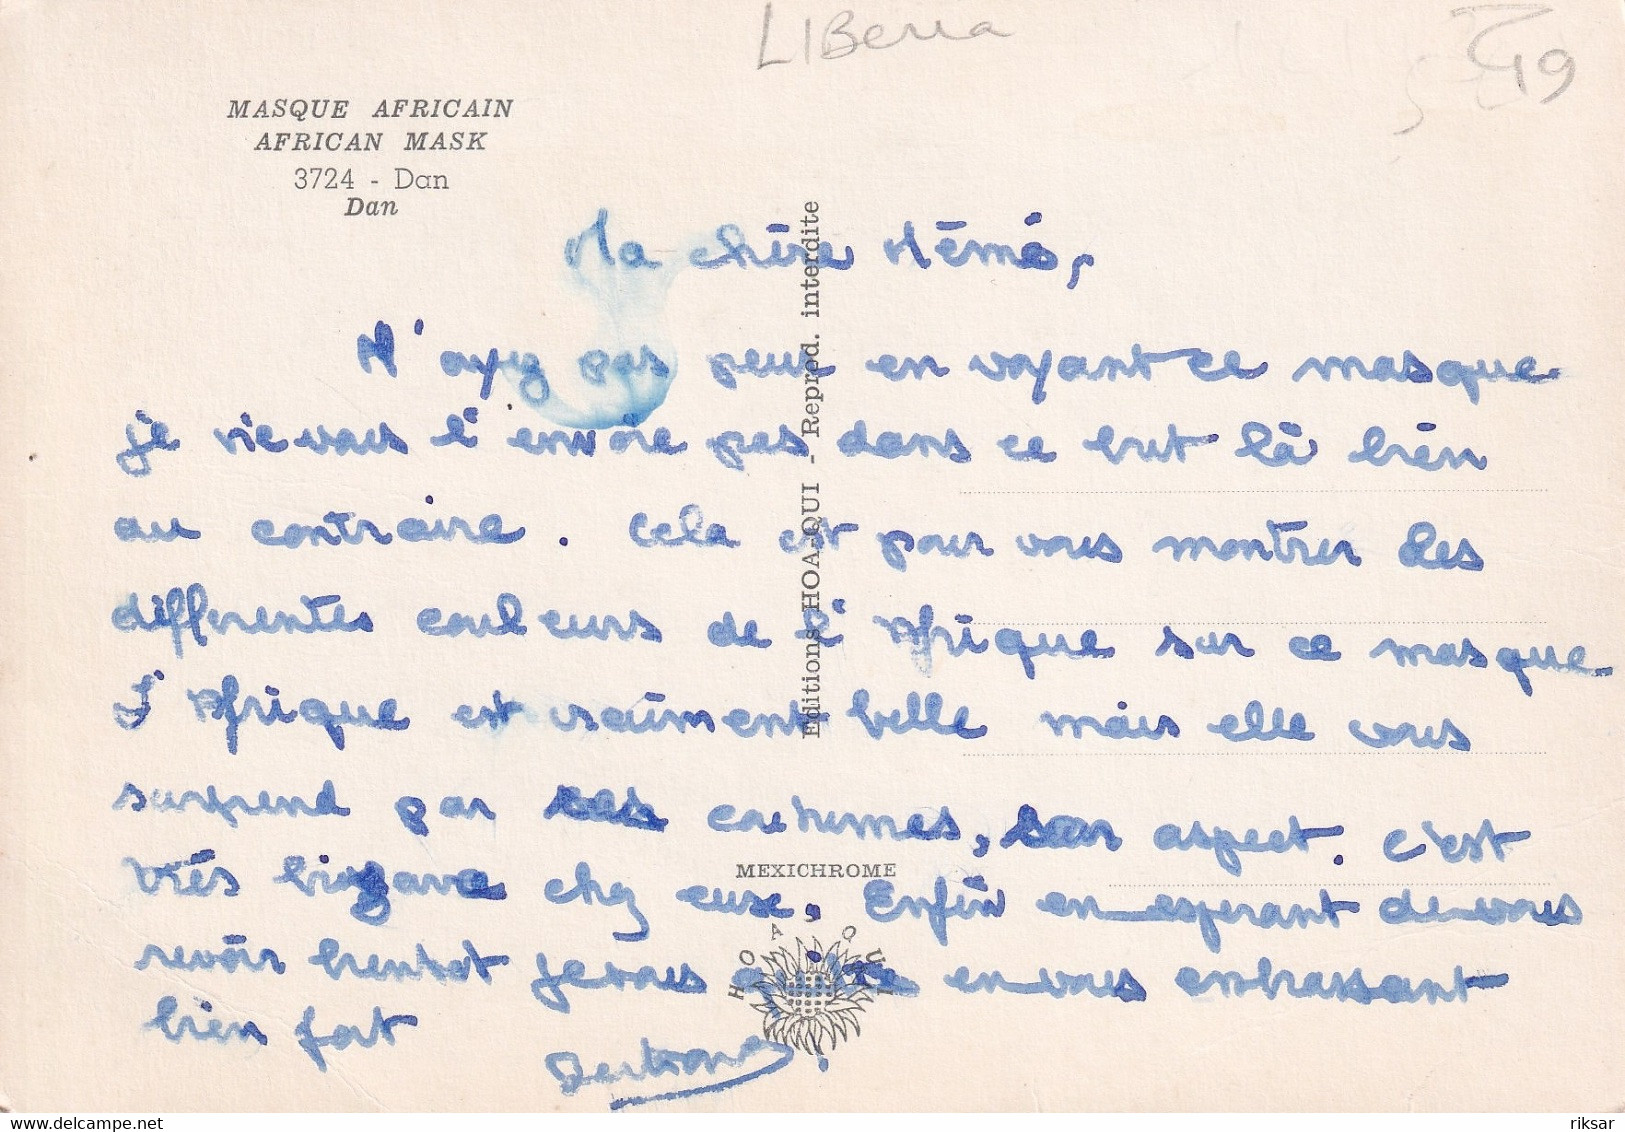 LIBeria
19
MASQUE AFRICAIN
AFRICAN MASK
3724 - Dan
Dan
Ma chère Mémé,
N'ayez pas peur en voyant ce masque
je ne vous l'envoie pas dans ce but là bien
au contraire. Cela est pour vous montrer les
différentes couleurs de l'Afrique sur ce masque
L'Afrique est vraiment belle mais elle vous
surprend par ses coutumes, son aspect. C'est
très bizarre chez eux. Enfin en esperant de vous
revoir bientot je vous en vous embrassant
bien fort
Editions HOA-QUI - Reprod. interdite
MEXICHROME
HOA QUI
delcampe.net
riksar